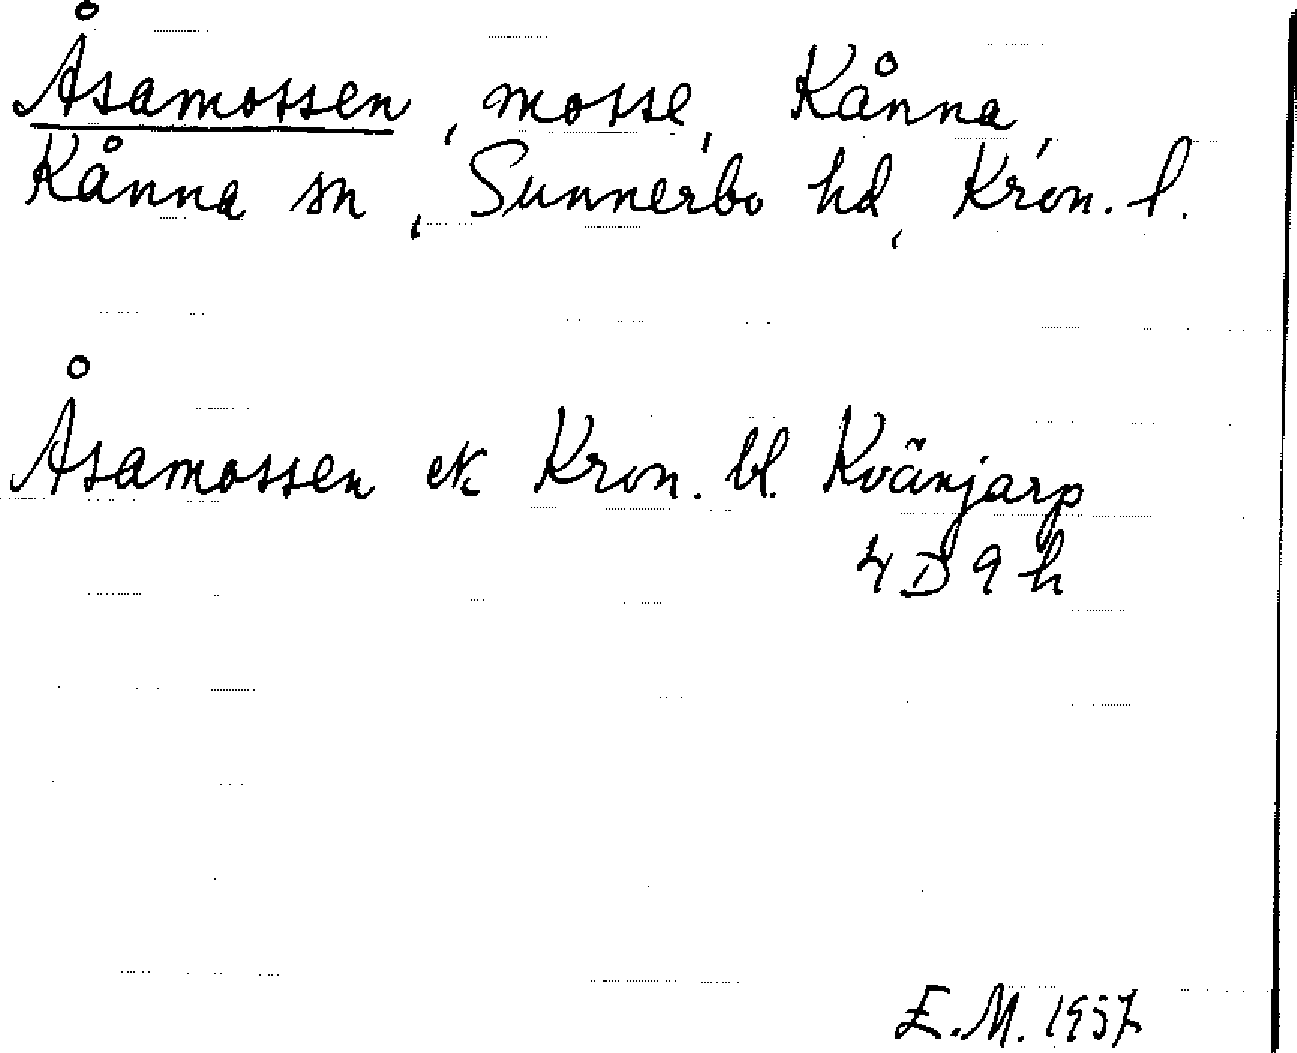 Åsamossen, mosse, Kånna,
Kånna sn, Sunnerbo hd, Kron. l.
Åsamossen ek Kron. bl. Kvänjarp
4D9h
E.M. 1957